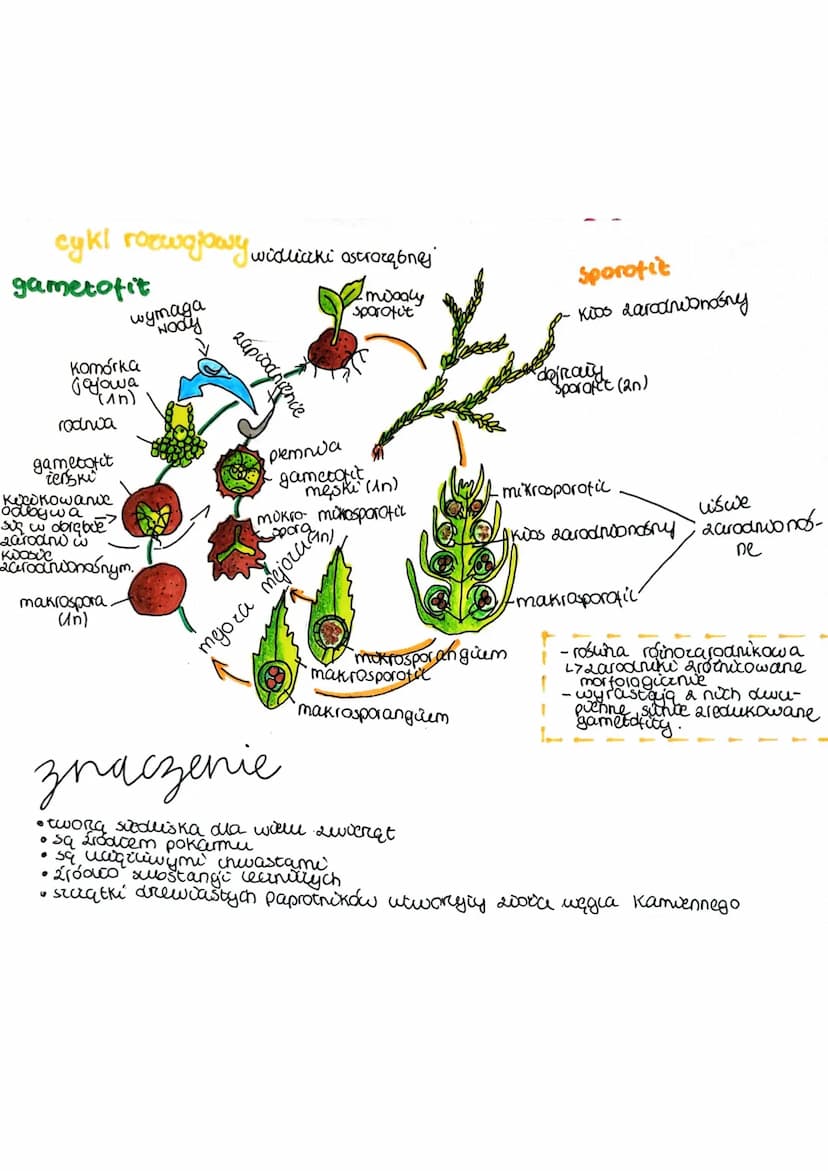 cykl rozwojowy widliczki ostrozębnej
gametofit
sporofit
wymaga
wody
zapłodnienie
młody
sporofit
kłos zarodnionośny
dojrzały
sporofit (2n)
komórka
jajowa
(1n)
rodnia
plemnia
gametofit
żeński
gametofit
męski (1n)
kiełkowanie
odbywa
się w obrębie
zarodni w
kłosie
zarodnionośnym.
mikro-
spora
(1n)
mikrosporofil
mikrosporofil
kłos zarodnionośny
makrosporofil
liście
zarodnionoś-
ne
makrospora
(1n)
mejoza
mejoza
mikrosporangium
makrosporofil
makrosporangium
- roślina różnozarodnikowa
↳ zarodniki zróżnicowane
morfologicznie
- wyrastają z nich dwu-
pienne, silnie zredukowane
gametofity.
znaczenie
• tworzą siedliska dla wielu zwierząt
• są źródłem pokarmu
• są uciążliwymi chwastami
• źródło substancji leczniczych
• szczątki drzewiastych paprotników utworzyły złoża węgla kamiennego